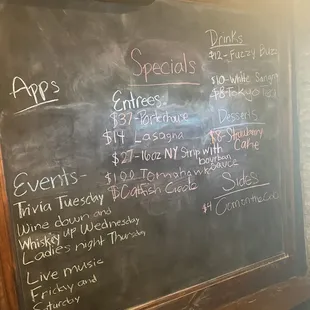 Drinks
$12-Fuzzy Buzz
$10-White Sangria
$8-Tokyo Tea
Specials
Apps
Entrees-
$37-Porterhouse
$14 Lasagna
$27-16oz NY Strip with
bourbon
sauce
$100 Tomahawk
Catfish Creole
Desserts
$8-Strawberry
Cake
Sides
$4
Events-
Trivia Tuesday
Wine down and
Whiskey up Wednesday
Ladies night Thursday
Live music
Friday and
Saturday